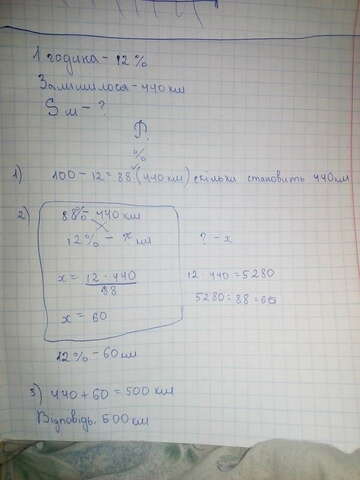 1 година - 12%
Залишилося - 440 км
S м - ?
%
1) 100 - 12 = 88 (440 км) скільки становить 440 км
2) 88% - 440 км
12% - x км ? - x
x = 12 · 440 / 88 12 · 440 = 5280
5280 : 88 = 60
x = 60
12% - 60 км
3) 440 + 60 = 500 км
Відповідь. 500 км